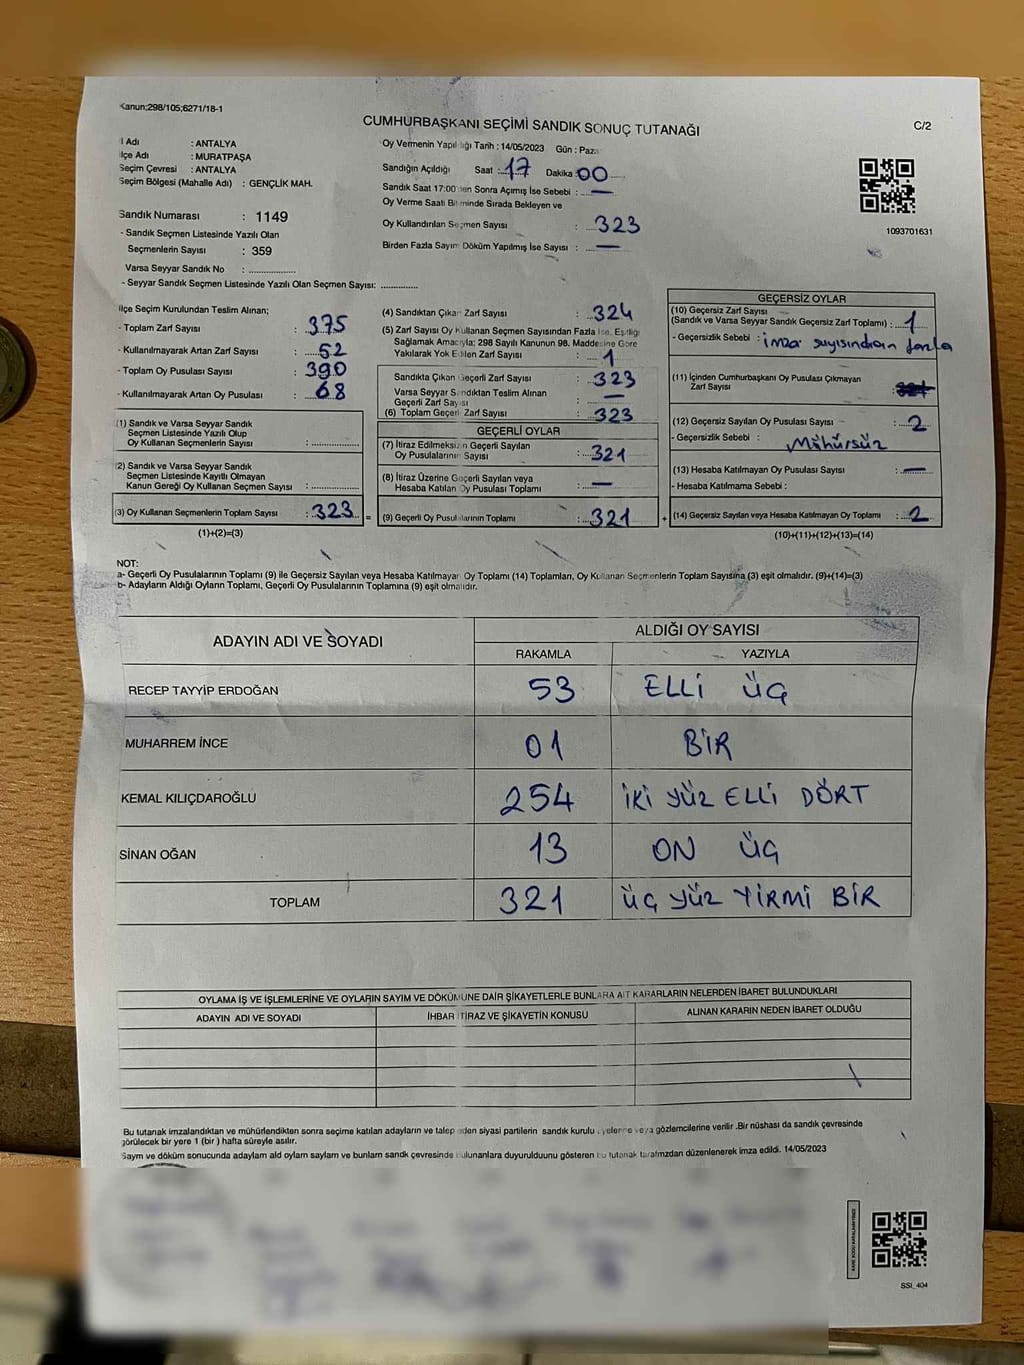 Kanun;298/105;6271/18-1
CUMHURBAŞKANI SEÇİMİ SANDIK SONUÇ TUTANAĞI
C/2
İl Adı : ANTALYA
İlçe Adı : MURATPAŞA
Seçim Çevresi : ANTALYA
Seçim Bölgesi (Mahalle Adı) : GENÇLİK MAH.
Sandık Numarası : 1149
- Sandık Seçmen Listesinde Yazılı Olan
Seçmenlerin Sayısı : 359
Varsa Seyyar Sandık No : ..............
- Seyyar Sandık Seçmen Listesinde Yazılı Olan Seçmen Sayısı: ............
Oy Vermenin Yapıldığı Tarih : 14/05/2023 Gün : Paz
Sandığın Açıldığı Saat : 17 Dakika : 00
Sandık Saat 17:00'den Sonra Açımış İse Sebebi : —
Oy Verme Saati Bitiminde Sırada Bekleyen ve
Oy Kullandırılan Seçmen Sayısı : 323
Birden Fazla Sayım Döküm Yapılmış İse Sayısı : —
1093701631
İlçe Seçim Kurulundan Teslim Alınan;
- Toplam Zarf Sayısı : 375
- Kullanılmayarak Artan Zarf Sayısı : 52
- Toplam Oy Pusulası Sayısı : 390
- Kullanılmayarak Artan Oy Pusulası : 68
(1) Sandık ve Varsa Seyyar Sandık
Seçmen Listesinde Yazılı Olup
Oy Kullanan Seçmenlerin Sayısı : ............
(2) Sandık ve Varsa Seyyar Sandık
Seçmen Listesinde Kayıtlı Olmayan
Kanun Gereği Oy Kullanan Seçmen Sayısı : ............
(3) Oy Kullanan Seçmenlerin Toplam Sayısı : 323 =
(1)+(2)=(3)
(4) Sandıktan Çıkan Zarf Sayısı : 324
(5) Zarf Sayısı Oy Kullanan Seçmen Sayısından Fazla İse, Eşitliği
Sağlamak Amacıyla; 298 Sayılı Kanunun 98. Maddesine Göre
Yakılarak Yok Edilen Zarf Sayısı : 1
Sandıkta Çıkan Geçerli Zarf Sayısı : 323
Varsa Seyyar Sandıktan Teslim Alınan
Geçerli Zarf Sayısı : —
(6) Toplam Geçerli Zarf Sayısı : 323
GEÇERLİ OYLAR
(7) İtiraz Edilmeksizin Geçerli Sayılan
Oy Pusulalarının Sayısı : 321
(8) İtiraz Üzerine Geçerli Sayılan veya
Hesaba Katılan Oy Pusulası Toplamı : —
(9) Geçerli Oy Pusulalarının Toplamı : 321 +
GEÇERSİZ OYLAR
(10) Geçersiz Zarf Sayısı
(Sandık ve Varsa Seyyar Sandık Geçersiz Zarf Toplamı) : 1
- Geçersizlik Sebebi : imza sayısından fazla
(11) İçinden Cumhurbaşkanı Oy Pusulası Çıkmayan
Zarf Sayısı :
(12) Geçersiz Sayılan Oy Pusulası Sayısı : 2
- Geçersizlik Sebebi : Mühürsüz
(13) Hesaba Katılmayan Oy Pusulası Sayısı : —
- Hesaba Katılmama Sebebi :
(14) Geçersiz Sayılan veya Hesaba Katılmayan Oy Toplamı : 2
(10)+(11)+(12)+(13)=(14)
NOT:
a- Geçerli Oy Pusulalarının Toplamı (9) ile Geçersiz Sayılan veya Hesaba Katılmayan Oy Toplamı (14) Toplamları, Oy Kullanan Seçmenlerin Toplam Sayısına (3) eşit olmalıdır. (9)+(14)=(3)
b- Adayların Aldığı Oyların Toplamı, Geçerli Oy Pusulalarının Toplamına (9) eşit olmalıdır.
ADAYIN ADI VE SOYADI
ALDIĞI OY SAYISI
RAKAMLA YAZIYLA
RECEP TAYYİP ERDOĞAN 53 ELLİ ÜÇ
MUHARREM İNCE 01 BİR
KEMAL KILIÇDAROĞLU 254 İKİ YÜZ ELLİ DÖRT
SİNAN OĞAN 13 ON ÜÇ
TOPLAM 321 ÜÇ YÜZ YİRMİ BİR
OYLAMA İŞ VE İŞLEMLERİNE VE OYLARIN SAYIM VE DÖKÜMÜNE DAİR ŞİKAYETLERLE BUNLARA AİT KARARLARIN NELERDEN İBARET BULUNDUKLARI
ADAYIN ADI VE SOYADI İHBAR İTİRAZ VE ŞİKAYETİN KONUSU ALINAN KARARIN NEDEN İBARET OLDUĞU
Bu tutanak imzalandıktan ve mühürlendikten sonra seçime katılan adayların ve talep eden siyasi partilerin sandık kurulu üyelerine veya gözlemcilerine verilir .Bir nüshası da sandık çevresinde
görülecek bir yere 1 (bir ) hafta süreyle asılır.
Sayım ve döküm sonucunda adaylam ald oylarn saylam ve bunlam sandk çevresinde bulunanlara duyurulduunu gösteren bu tutanak tarafmzdan düzenlenerek imza edildi. 14/05/2023
SSI_404